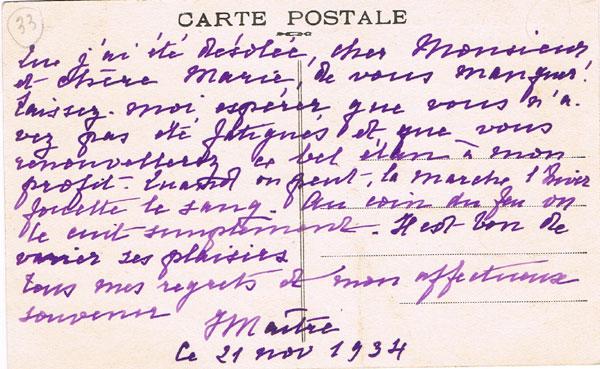 33
CARTE POSTALE
Que j'ai été désolée, cher Monsieur
et chère Marie, de vous manquer!
Laissez-moi espérer que vous n'a-
vez pas été fatigués et que vous
renouvellerez ce bel élan à mon
profit. Quand on peut, la marche l'hiver
fouette le sang. Au coin du feu on
le cuit simplement. Il est bon de
varier ses plaisirs
Tous mes regrets et mon affectueux
souvenir
JMaitre
Ce 21 nov 1934